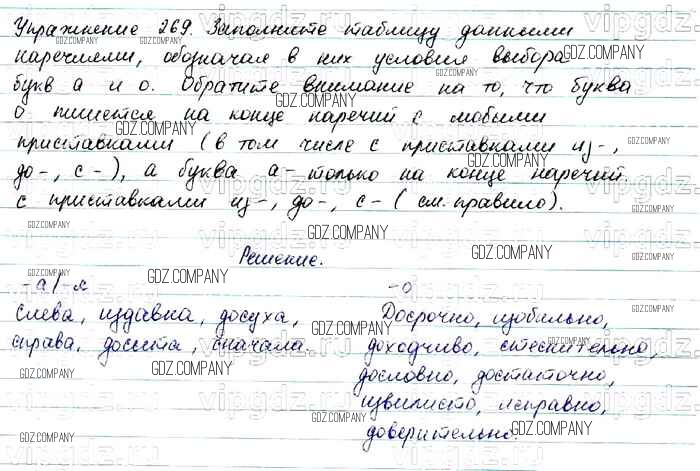 Упражнение 269. Заполните таблицу данными
наречиями, обозначая в них условия выбора
букв а и о. Обратите внимание на то, что буква
о пишется на конце наречий с любыми
приставками (в том числе с приставками из-,
до-, с-), а буква а- только на конце наречий
с приставками из-, до-, с- (см. правило).
Решение.
-а/-я -о
Слева, издавна, досуха, Досрочно, изобильно,
справа, досыта, сначала. доходчиво, стеснительно,
дословно, достаточно,
извилисто, исправно,
доверительно.
GDZ.COMPANY
vipgdz.ru